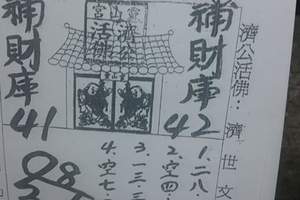 濟公活佛：濟世文
補財庫
42
濟公
活佛
補財庫
41
1.二八.
2.空四.
3.一三.
4.空七.
08